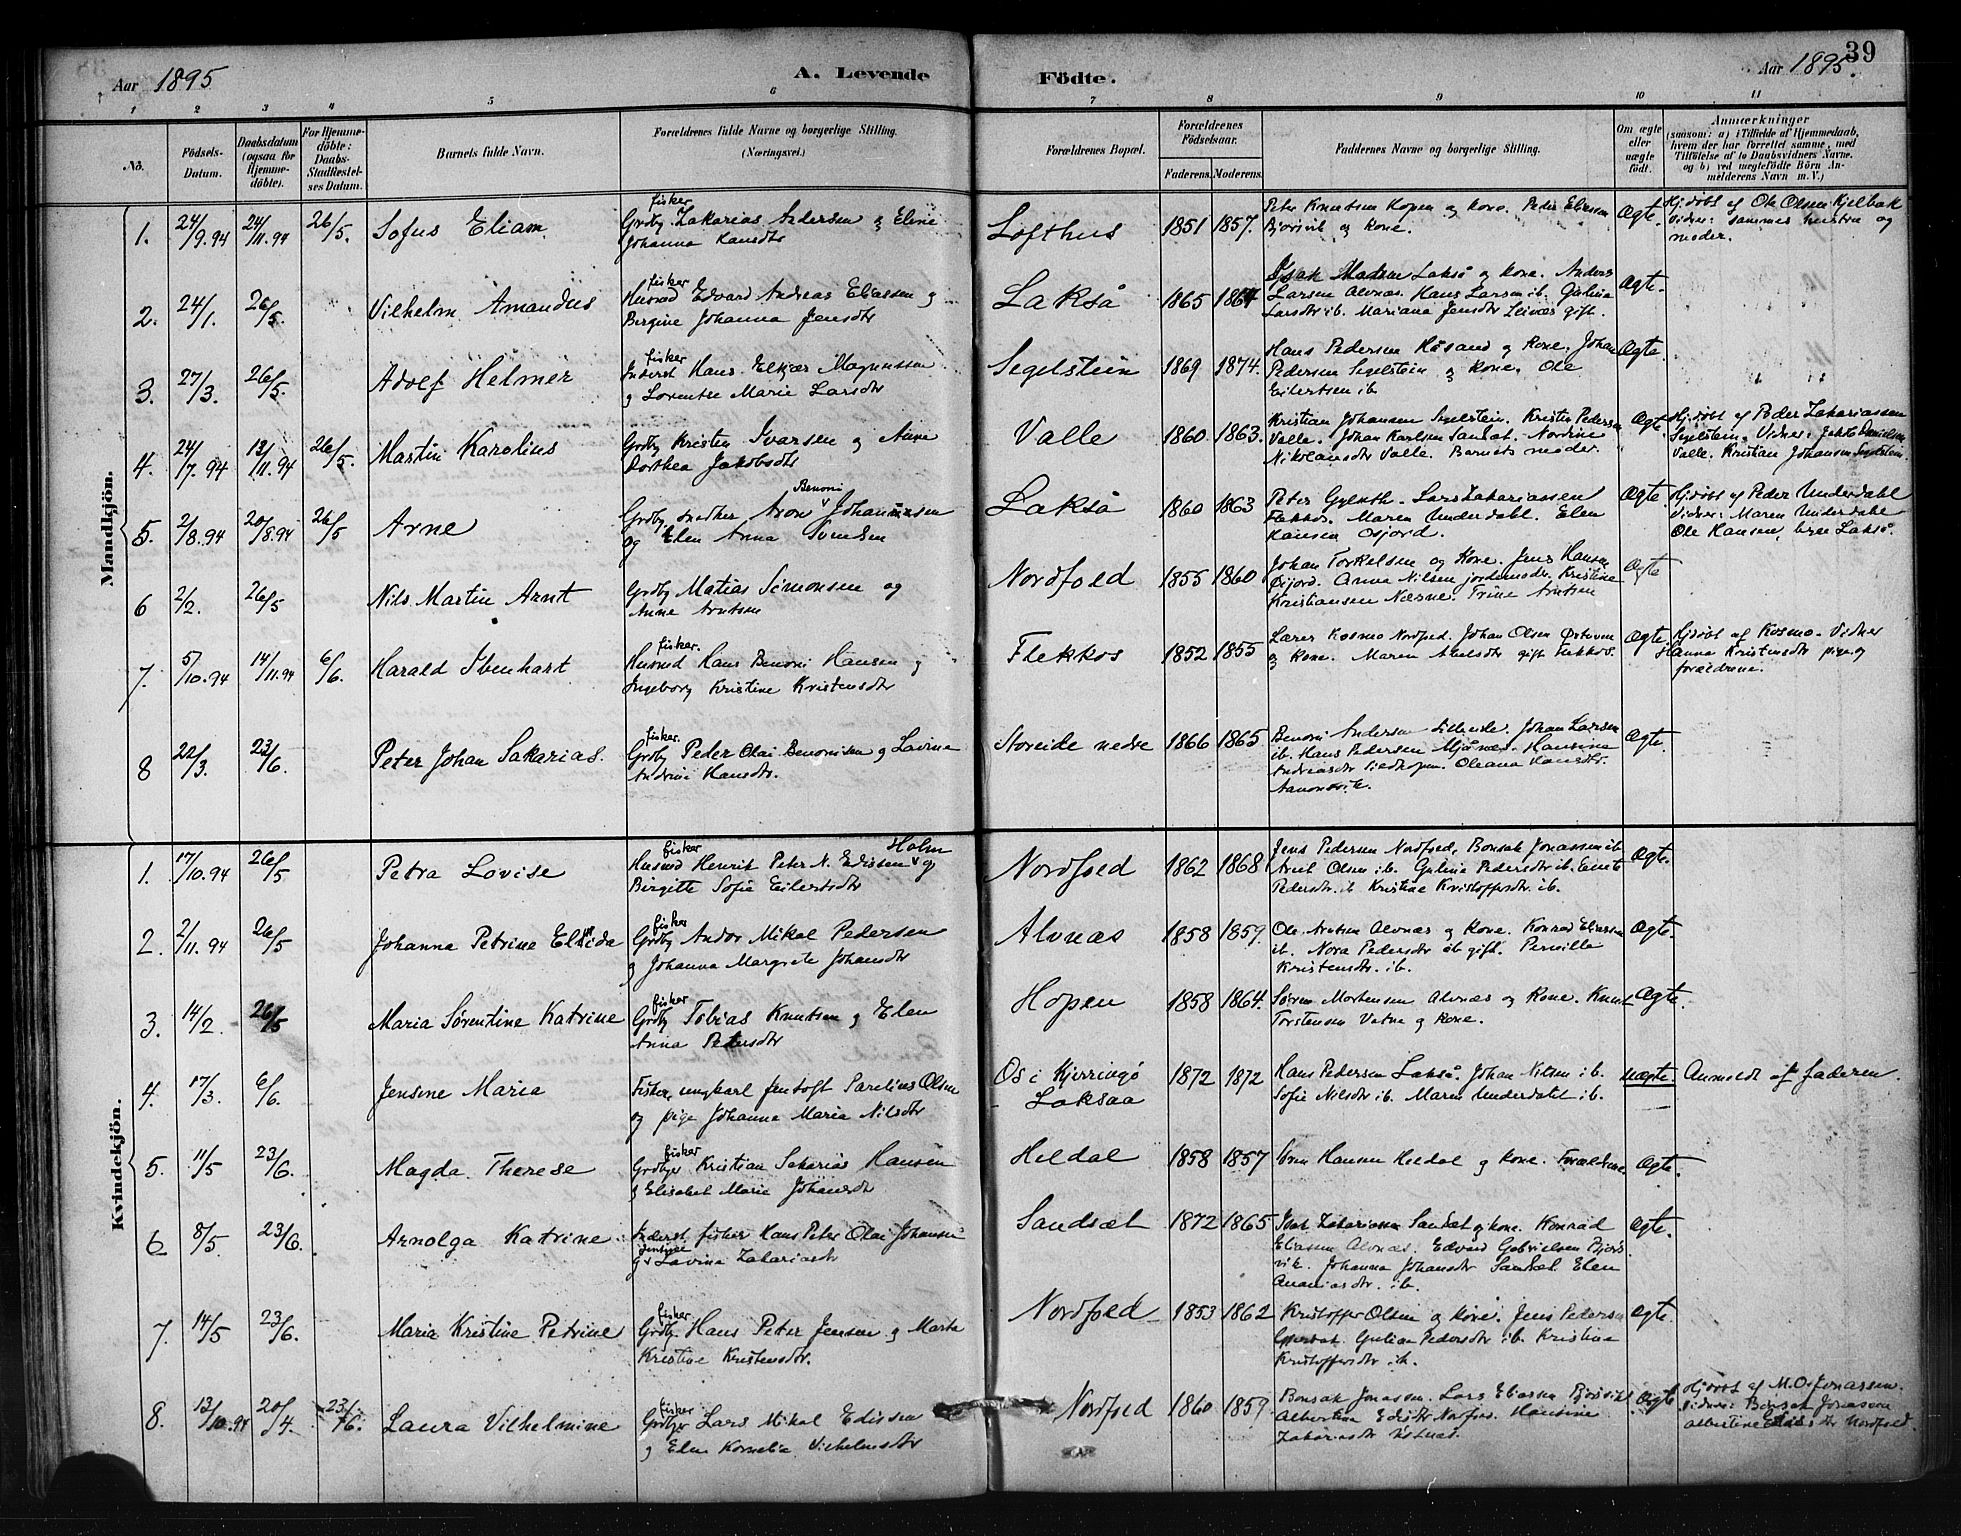 39
Aar 1895
A. Levende Födte.
Aar 1895.
1 2 3 4 5 6 7 8 9 10 11
No.
Födsels-Datum.
Daabsdatum (ogsaa for Hjemme-döbte).
For Hjemme-döbte: Daabs-Stadfæstel-ses Datum.
Barnets fulde Navn.
Forældrenes fulde Navne og borgerlige Stilling.
(Næringsvei.)
Forældrenes Bopæl.
Forældrenes Födselsaar.
Faderens. Moderens.
Faddernes Navne og borgerlige Stilling.
Om ægte eller uægte født.
Anmærkninger
(saasom: a) i Tilfælde af Hjemmedaab, hvem der har forrettet samme, med Tilföielse af to Daabsvidners Navne. og b) ved uægtefödte Börn Anmelderens Navn m. V.)
Mandkjön.
1. 24/9.94 24/11.94 26/5. Sofus Eliam
fisker
Grdbr Zakarias Andersen og Eline
Johanna Hansdtr
Lofthus 1851 1857.
Peter Knutsen Hopen og kone. Peder Eliassen
Bjørsvik og Kone.
Ægte.
Hjdøbt af Ole Olsen Kjelbak
Vidner: sammes hustru og
moder.
2. 24/1. 26/5. Vilhelm Amandus
fisker
Husmd Edvard Andreas Eliassen og
Bergine Johanna Jensdtr
Lakså 1865 1864
Isak Madsen Lakså og kone. Anders
Larsen Alvnæs. Hans Larsen ib. Gulina
Larsdtr ib. Mariana Jensdtr Leines gift.
Ægte.
3. 27/3. 26/5. Adolf Helmer
fisker
Inderst Hans Elkjær Magnussen
og Lorentse Marie Larsdtr
Segelstein 1869 1874.
Hans Pedersen Råsand og Kone. Johan
Pedersen Segelstein og kone. Ole
Eilertsen ib
Ægte.
4. 24/7.94 13/11.94 26/5. Martin Karolius
Grdbr Kristen Ivarsen og Anne
Dorthea Jakobsdtr
Valle 1860 1863.
Kristian Johansen Segelstein. Kristen Pedersen
Valle. Johan Karlsen Sandæt. Nordine
Nikolausdtr Valle. Barnets moder.
Ægte
Hjdøbt af Peder Zakariassen
Segelstein. Vidner: Jakob Danielsen
Valle. Kristian Johansen Segelstein.
5. 2/8.94 20/8.94 26/5 Arne
Benoni
Grdbr. snedker Aron Johannesen
og Elen Anna Svendsen
Lakså 1860 1863
Peter Gylseth. Lars Zakariassen
Flekkos. Maren Underdahl. Elen
Hansen Osfjord.
Ægte
Hjdøbt af Peder Underdahl
Vidner: Maren Underdahl
Ole Hansen, bree Lakså.
6 2/2. 26/5 Nils Martin Arnt
Grdbr Matias Simonsen og
Anne Arntsen
Nordfold 1855 1860
Johan Torkelsen og Kone. Jens Hansen
Øijord. Anna Nilsen jordemoder. Kristine
Kristiansen Næsne. Trine Arntsen
Ægte
7. 5/10.94 14/11.94 6/6. Harald Ibenhart
fisker.
Husmd Hans Benoni Hansen og
Ingeborg Kristine Kristensdtr
Flekkos 1852 1855
Lærer Kosmo Nordfold. Johan Olsen Østoven
og kone. Maren Akselsdtr gift Flekkos.
Ægte.
Hjdøbt af Kosmo. Vidner
Hanna Kristensdtr pige og
forældrene.
8 22/3. 23/6. Peter Johan Sakarias.
fisker.
Grdbr Peder Olai Benonisen og Lavina
Andrine Hansdtr.
Storeide nedre 1866 1865
Benoni Andersen. Johan Larsen
ib. Hans Pedersen Mjånes. Hansina
Andreasdtr. Oleana Hansdtr.
Aanonsvik.
Ægte.
Kvindekjön.
1. 17/10.94 26/5 Petra Lovise
fisker Holm
Husmd Henrik Peter N. Edissen og
Birgitte Sofie Eilertsdtr
Nordfold 1862 1868
Jens Pedersen Nordfold, Bonsak Jonassen ib.
Arnt Olsen ib. Gulina Pedersdtr ib.
Pedersdtr. ib Kristine Kristoffersdtr. ib.
Ægte.
2. 2/11.94 26/5 Johanna Petrine Elida
fisker
Grdbr Andor Mikal Pedersen
og Johanna Margrete Johansdtr
Alvnæs 1858 1859.
Ole Arntsen Alvnæs og kone. Konrad Eliassen
ib. Nora Pedersdtr ib gift. Pernille
Kristensdtr. ib.
Ægte.
3. 14/2. 26/5 Maria Sørentine Katrine
fisker
Grdbr Tobias Knutsen og Elen
Anna Petersdtr
Hopen 1858 1864.
Søren Mortensen Alvnæs og Kone. Knut
Torstensen Vatne og kone.
Ægte.
4. 17/3. 6/6. Jensine Maria
Fisker, ungkarl Jentoft Parelius Olsen
og pige Johanna Maria Nilsdtr
Os i Kjerringø
Laksaa
1872 1872
Hans Pedersen Lakså. Johan Nilsen ib.
Sofie Nilsdtr ib. Maren Underdahl ib.
uægte. Anmeldt af faderen.
5. 11/5 23/6. Magda Therese
fisker
Grdbr Kristian Sakarias Hansen
og Elisabet Marie Johansdtr
Heldal 1858 1857
Søren Hansen Heldal og kone. Forældrene.
Ægte.
6 8/5. 23/6. Arnolga Katrine
Inderst, fisker Hans Peter Olai Johansen
Jentine
og Lavina Zakariasdtr
Sandsæt 1872 1865
Isak Zakariassen Sandæt og kone. Konrad
Eliassen Alvnæs. Edvard Gabrielsen Bjørs
vik. Johanna Johansdtr Sandæt. Elen
Ananiasdtr. ib.
Ægte.
7. 14/5 23/6. Maria Kristine Petrine
fisker
Grdbr. Hans Peter Jensen og Marta
Kristine Kristensdtr.
Nordfold 1853 1862
Kristoffer Olsen og kone. Jens Pedersen
Gulina Pedersdtr ib. Kristina
Kristoffersdtr ib.
Ægte.
8. 13/10.94 20/4. 23/6. Laura Vilhelmine
fisker
Grdbr Lars Mikal Edissen
og Elen Kornelia Vilhelmsdtr
Nordfold 1860 1859
Bonsak Jonassen. Lars Eliassen Bjørsvik
Albertina Edisdtr Norfold. Hansine
Zakariasdtr
Ægte
Hjdøbt af M. O. Jonassen.
Vidner: Bonsak Jonassen
Albertine Edisdtr Nordfold.